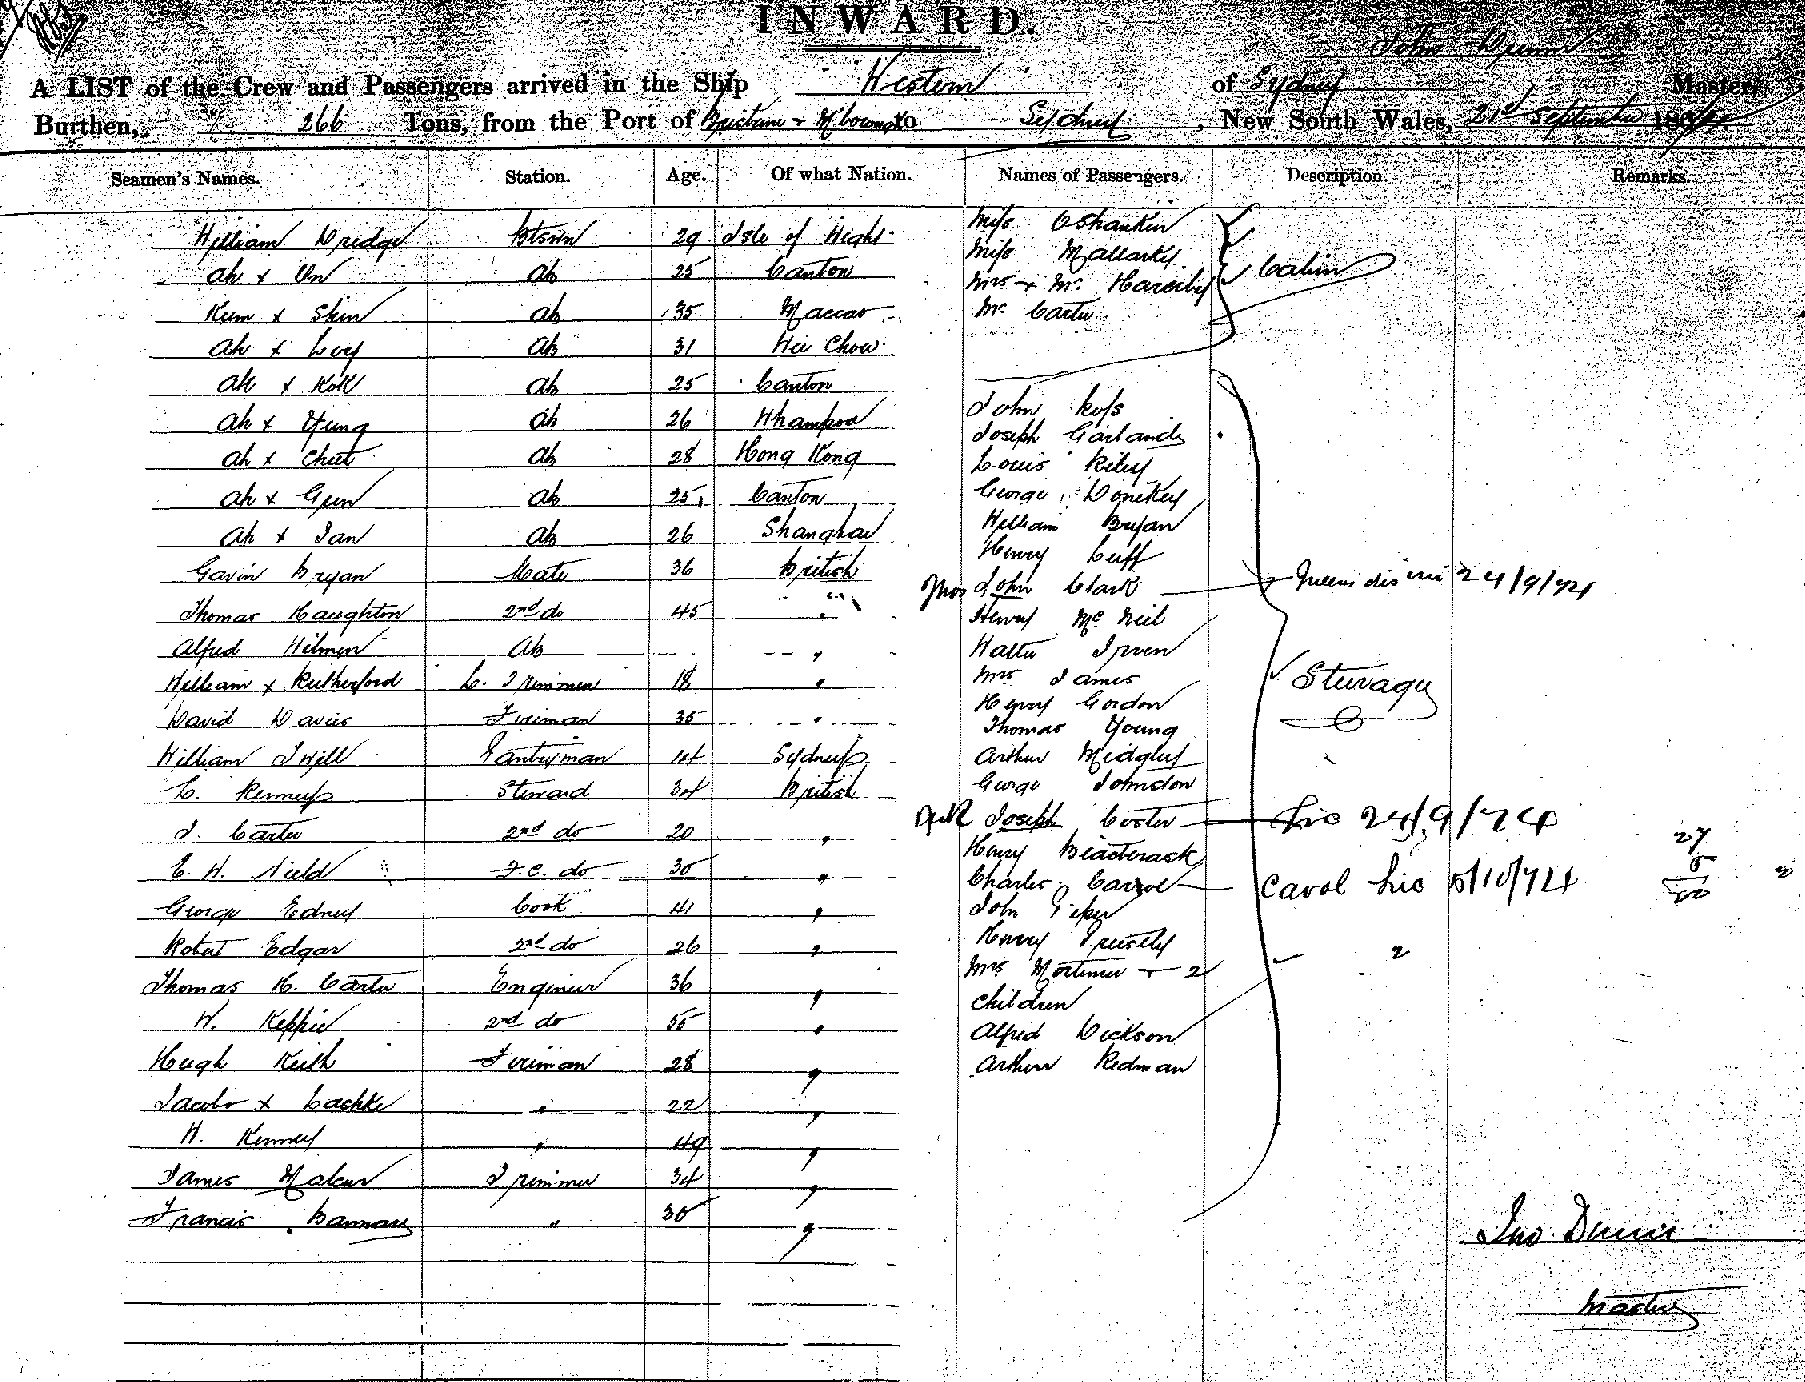 INWARD.
John Dunn
A LIST of the Crew and Passengers arrived in the Ship Western of Sydney Master,
Burthen, 266 Tons, from the Port of Brisbane + to Sydney, New South Wales, 21st September 187
Seamen's Names. Station. Age. Of what Nation. Names of Passengers. Description. Remarks.
William Bridge Btswn 29 Isle of Wight
Ah x On Ab 25 Canton
Kum x Shin Ab 35 Maccao
Ah x Loy Ab 31 Hei Chow
Ah x Kok Ab 25 Canton
Ah x Yung Ab 26 Whampoa
Ah x Chut Ab 28 Hong Kong
Ah x Gun Ab 25 Canton
Ah x Tan Ab 26 Shanghai
Gavin Bryan Mate 36 British
Thomas Haughton 2nd do 45 "
Alfred Hilmer Ab "
William x Rutherford L. Trimmer 18 "
David Davies Fireman 35 "
William Twill Pantryman 14 Sydney
L. Kenney Steward 34 British
J. Carter 2nd do 20 "
E. H. Nield F.C. do 30 "
George Edney Cook 41 "
Robert Edgar 2nd do 26 "
Thomas H. Carter Engineer 36 "
W. Keppie 2nd do 55 "
Hugh Keith Fireman 28 "
Jacob x Laskke " 22 "
W. Kenney " 49 "
James Maker Trimmer 34 "
Francis Bannan " 30 "
Miss O'Shankin
Miss Mallarky
Mrs + Mr. Cabin
Mr Carter
John Ross
Joseph Garland
Louis Riley
George Donekey
William Bryan
Henry Cuff
Thos John Clark 24/9/74
Henry McNeil
Walter Irven
Mrs James
Henry Gordon
Steerage
Thomas Young
Arthur Midgley
George Johnston
Joseph Coster Lic 24/9/74
Henry
Charles Carrol Carol Lic 5/10/74
John Piper
Henry Priestly
Mrs Mortimer + 2
Children
Alfred Dickson
Arthur Redman
27
5
Jno Dunn
Master